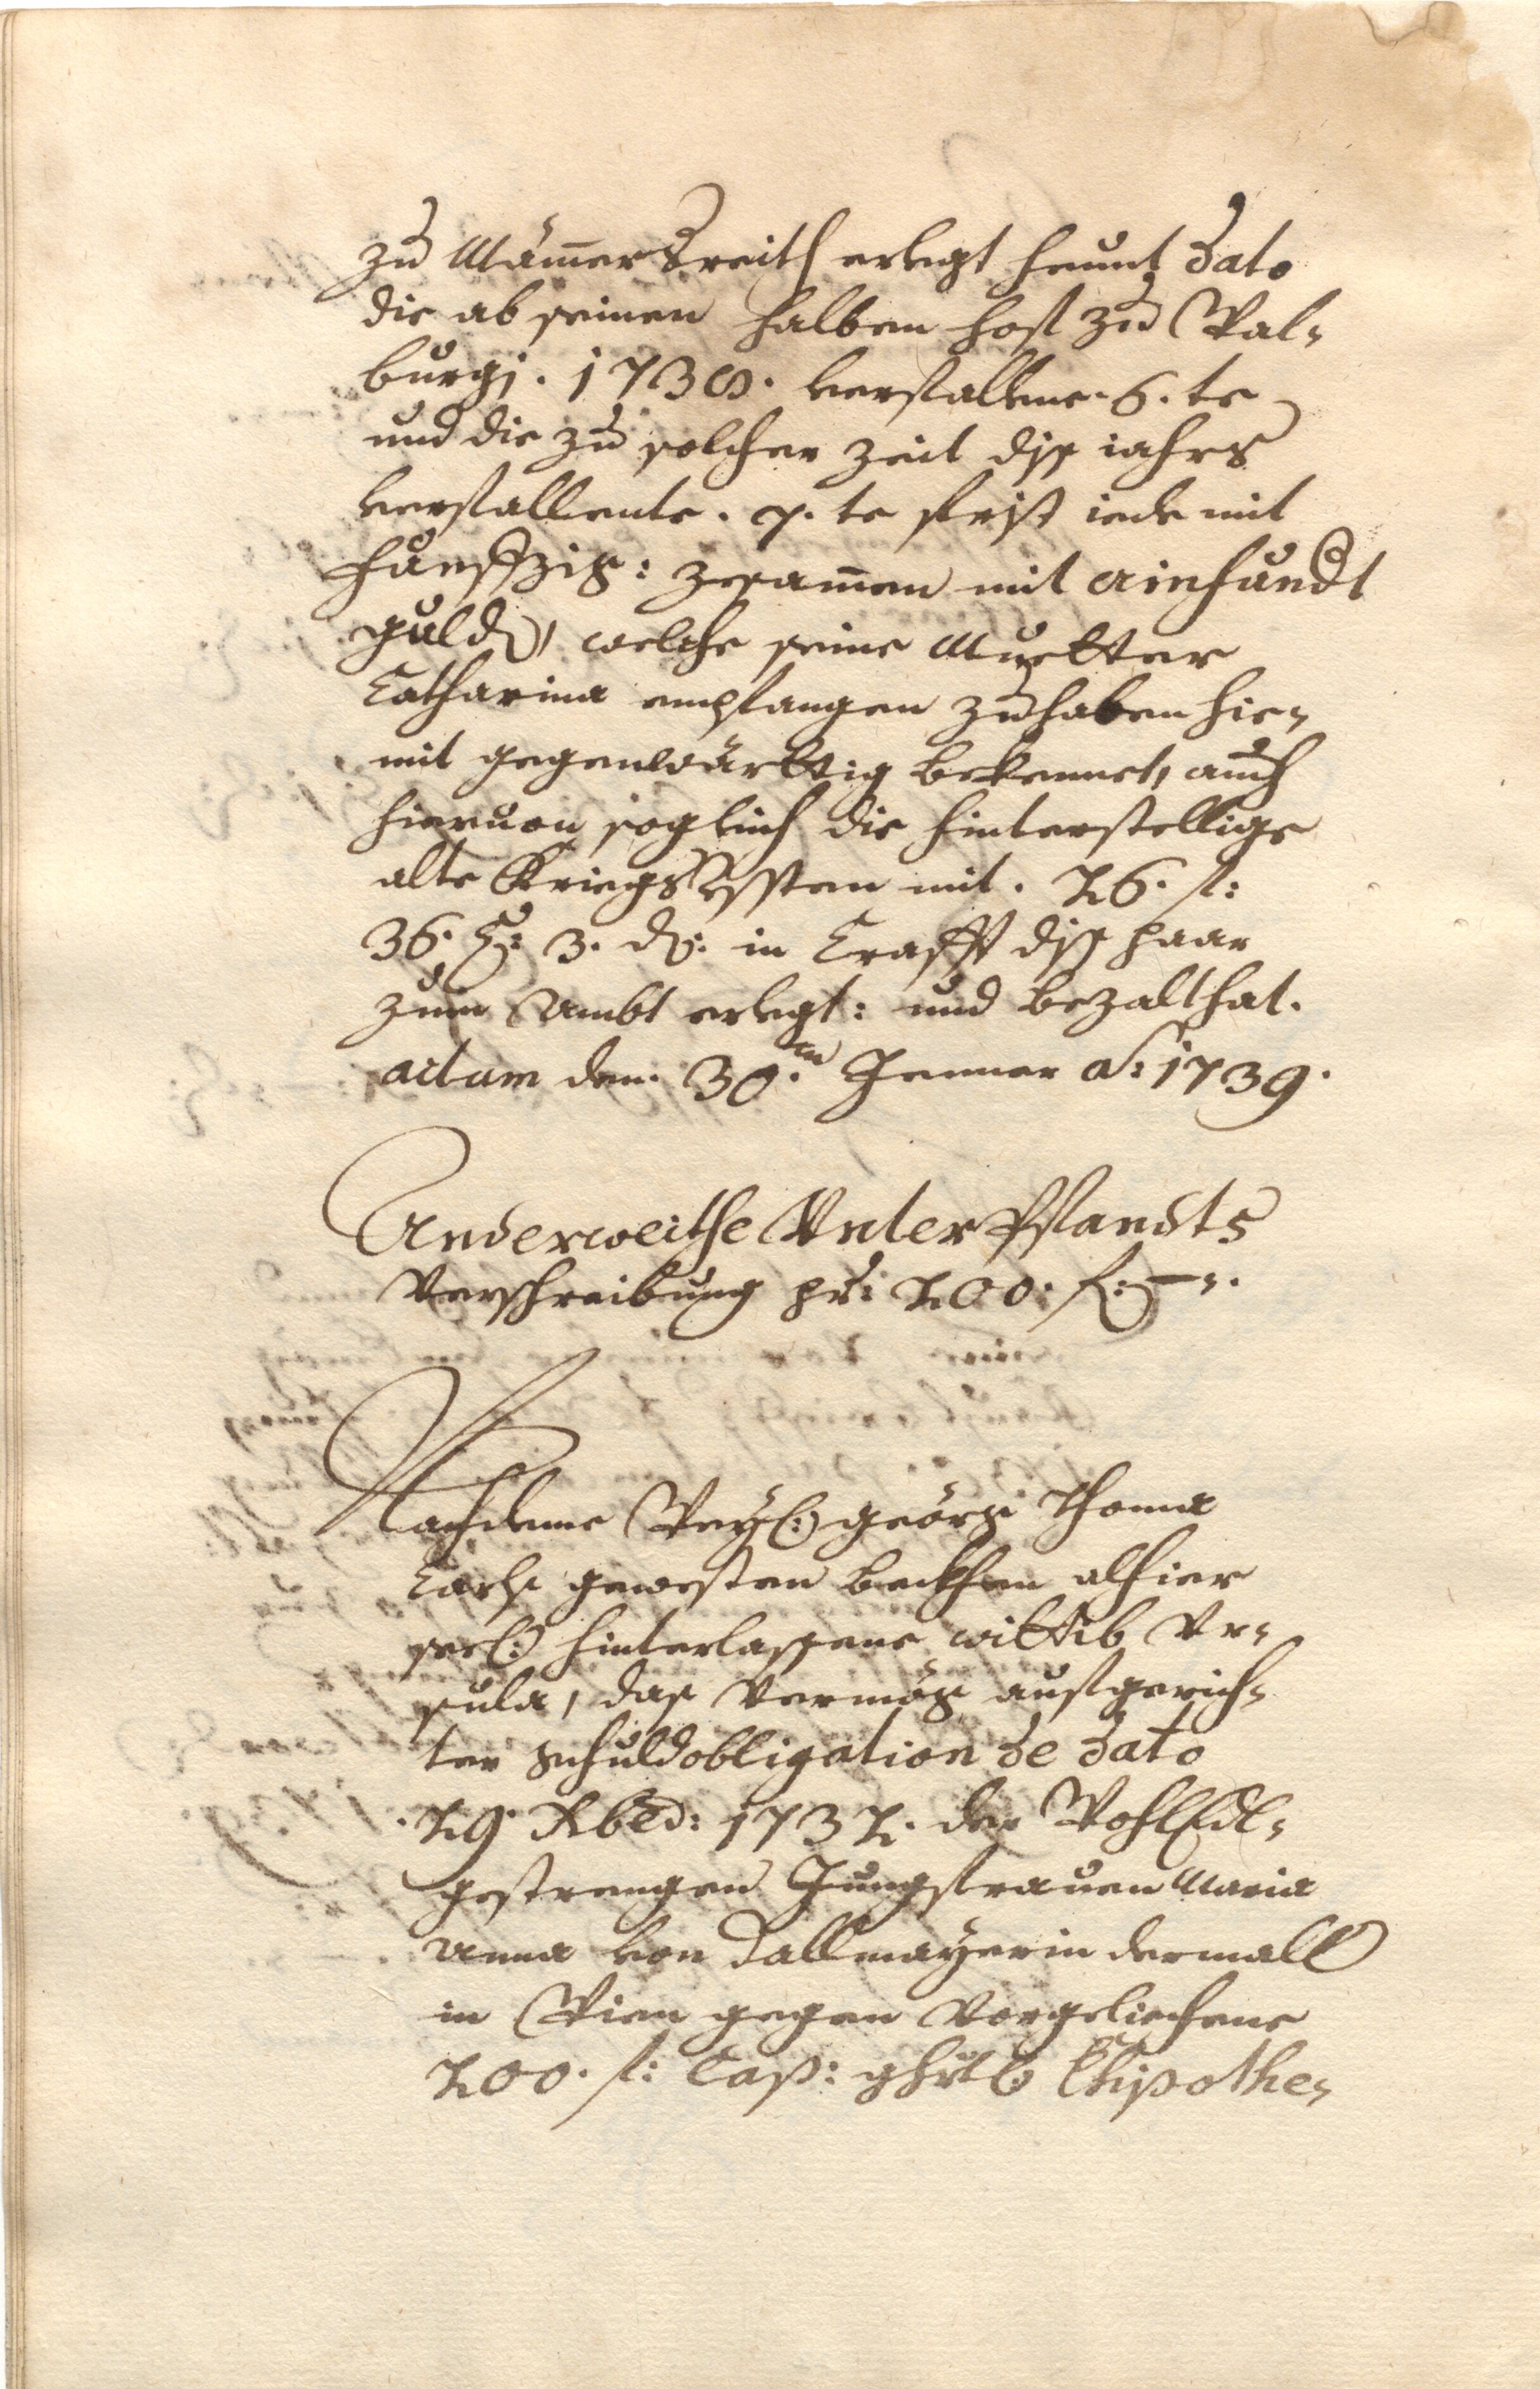 zu Mämersreith erlegt heunt Dato
die ab seinen halben hof zu Wal-
burgj. 1738. verfallene. 6. te
und die zu solcher zeit diß iahrs
verfallente. 7. te frist iede mit
funffzig: zesamen mit ainhundt
guld, welche seine Muetter
Catharina empfangen zuhaben hie-
mit gegenwärttig bekennet, auch
hieruon sogleich die hinterstellige
alte Kriegs Cossten mit. 26. f:
36. x: 3. d: in Crafft diß paar
zum Ambt erlegt: und bezalt hat.
actum den. 30.ten Jenner a: 1739.
Anderweithe Unterpfandts
Verschreibung pr: 200: f:
Nachdeme Weyl: geörg Thoma
gewesten beckhen alhier
seel: hinterlassene wittib Ur-
sula, das Vermög aufgerich-
ter schuldobligation De Dato
29. Xbed: 1732. der WohlEdl-
gestrengen Jungfrauen Maria
Anna von Dallmayerin dermall
in Wien gegen Vorgeliechene
200. f: Cap: ghrtl: Hipothe-